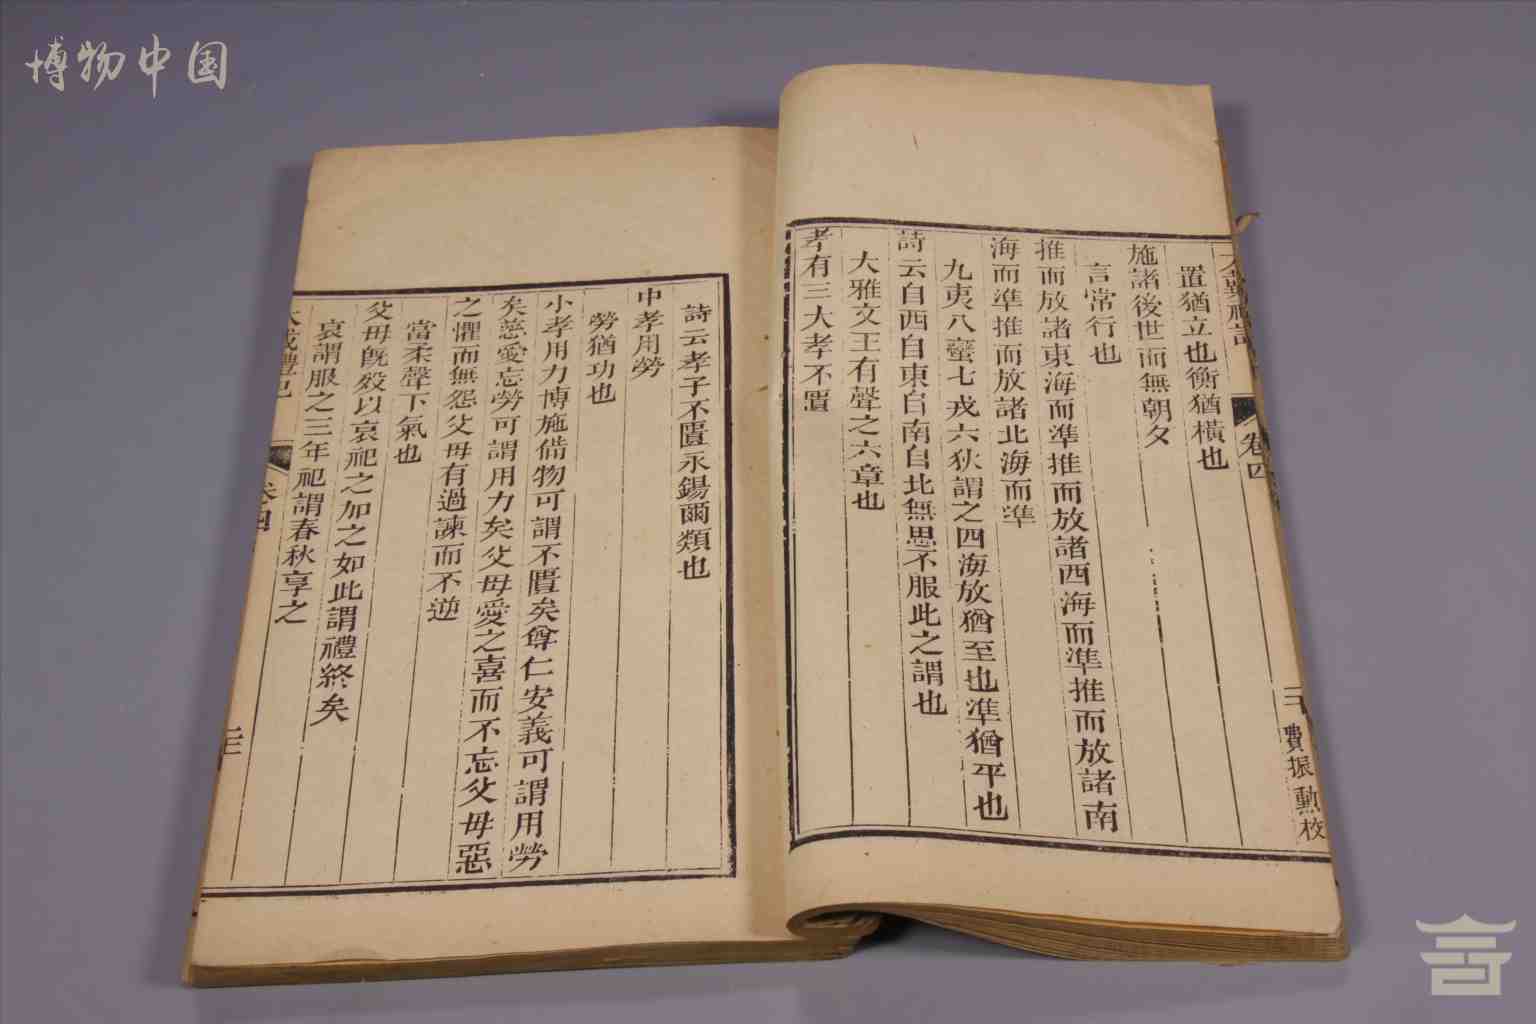 博物中国
卷四
費振勳校
置猶立也衡猶橫也
施諸後世而無朝夕
言常行也
推而放諸東海而準推而放諸西海而準推而放諸南
海而準推而放諸北海而準
九夷八蠻七戎六狄謂之四海放猶至也準猶平也
詩云自西自東自南自北無思不服此之謂也
大雅文王有聲之六章也
孝有三大孝不匱
詩云孝子不匱永錫爾類也
中孝用勞
勞猶功也
小孝用力博施備物可謂不匱矣尊仁安義可謂用勞
矣慈愛忘勞可謂用力矣父母愛之喜而不忘父母惡
之懼而無怨父母有過諫而不逆
當柔聲下氣也
父母旣歿以哀祀之加之如此謂禮終矣
哀謂服之三年祀謂春秋享之
大戴禮記
卷四